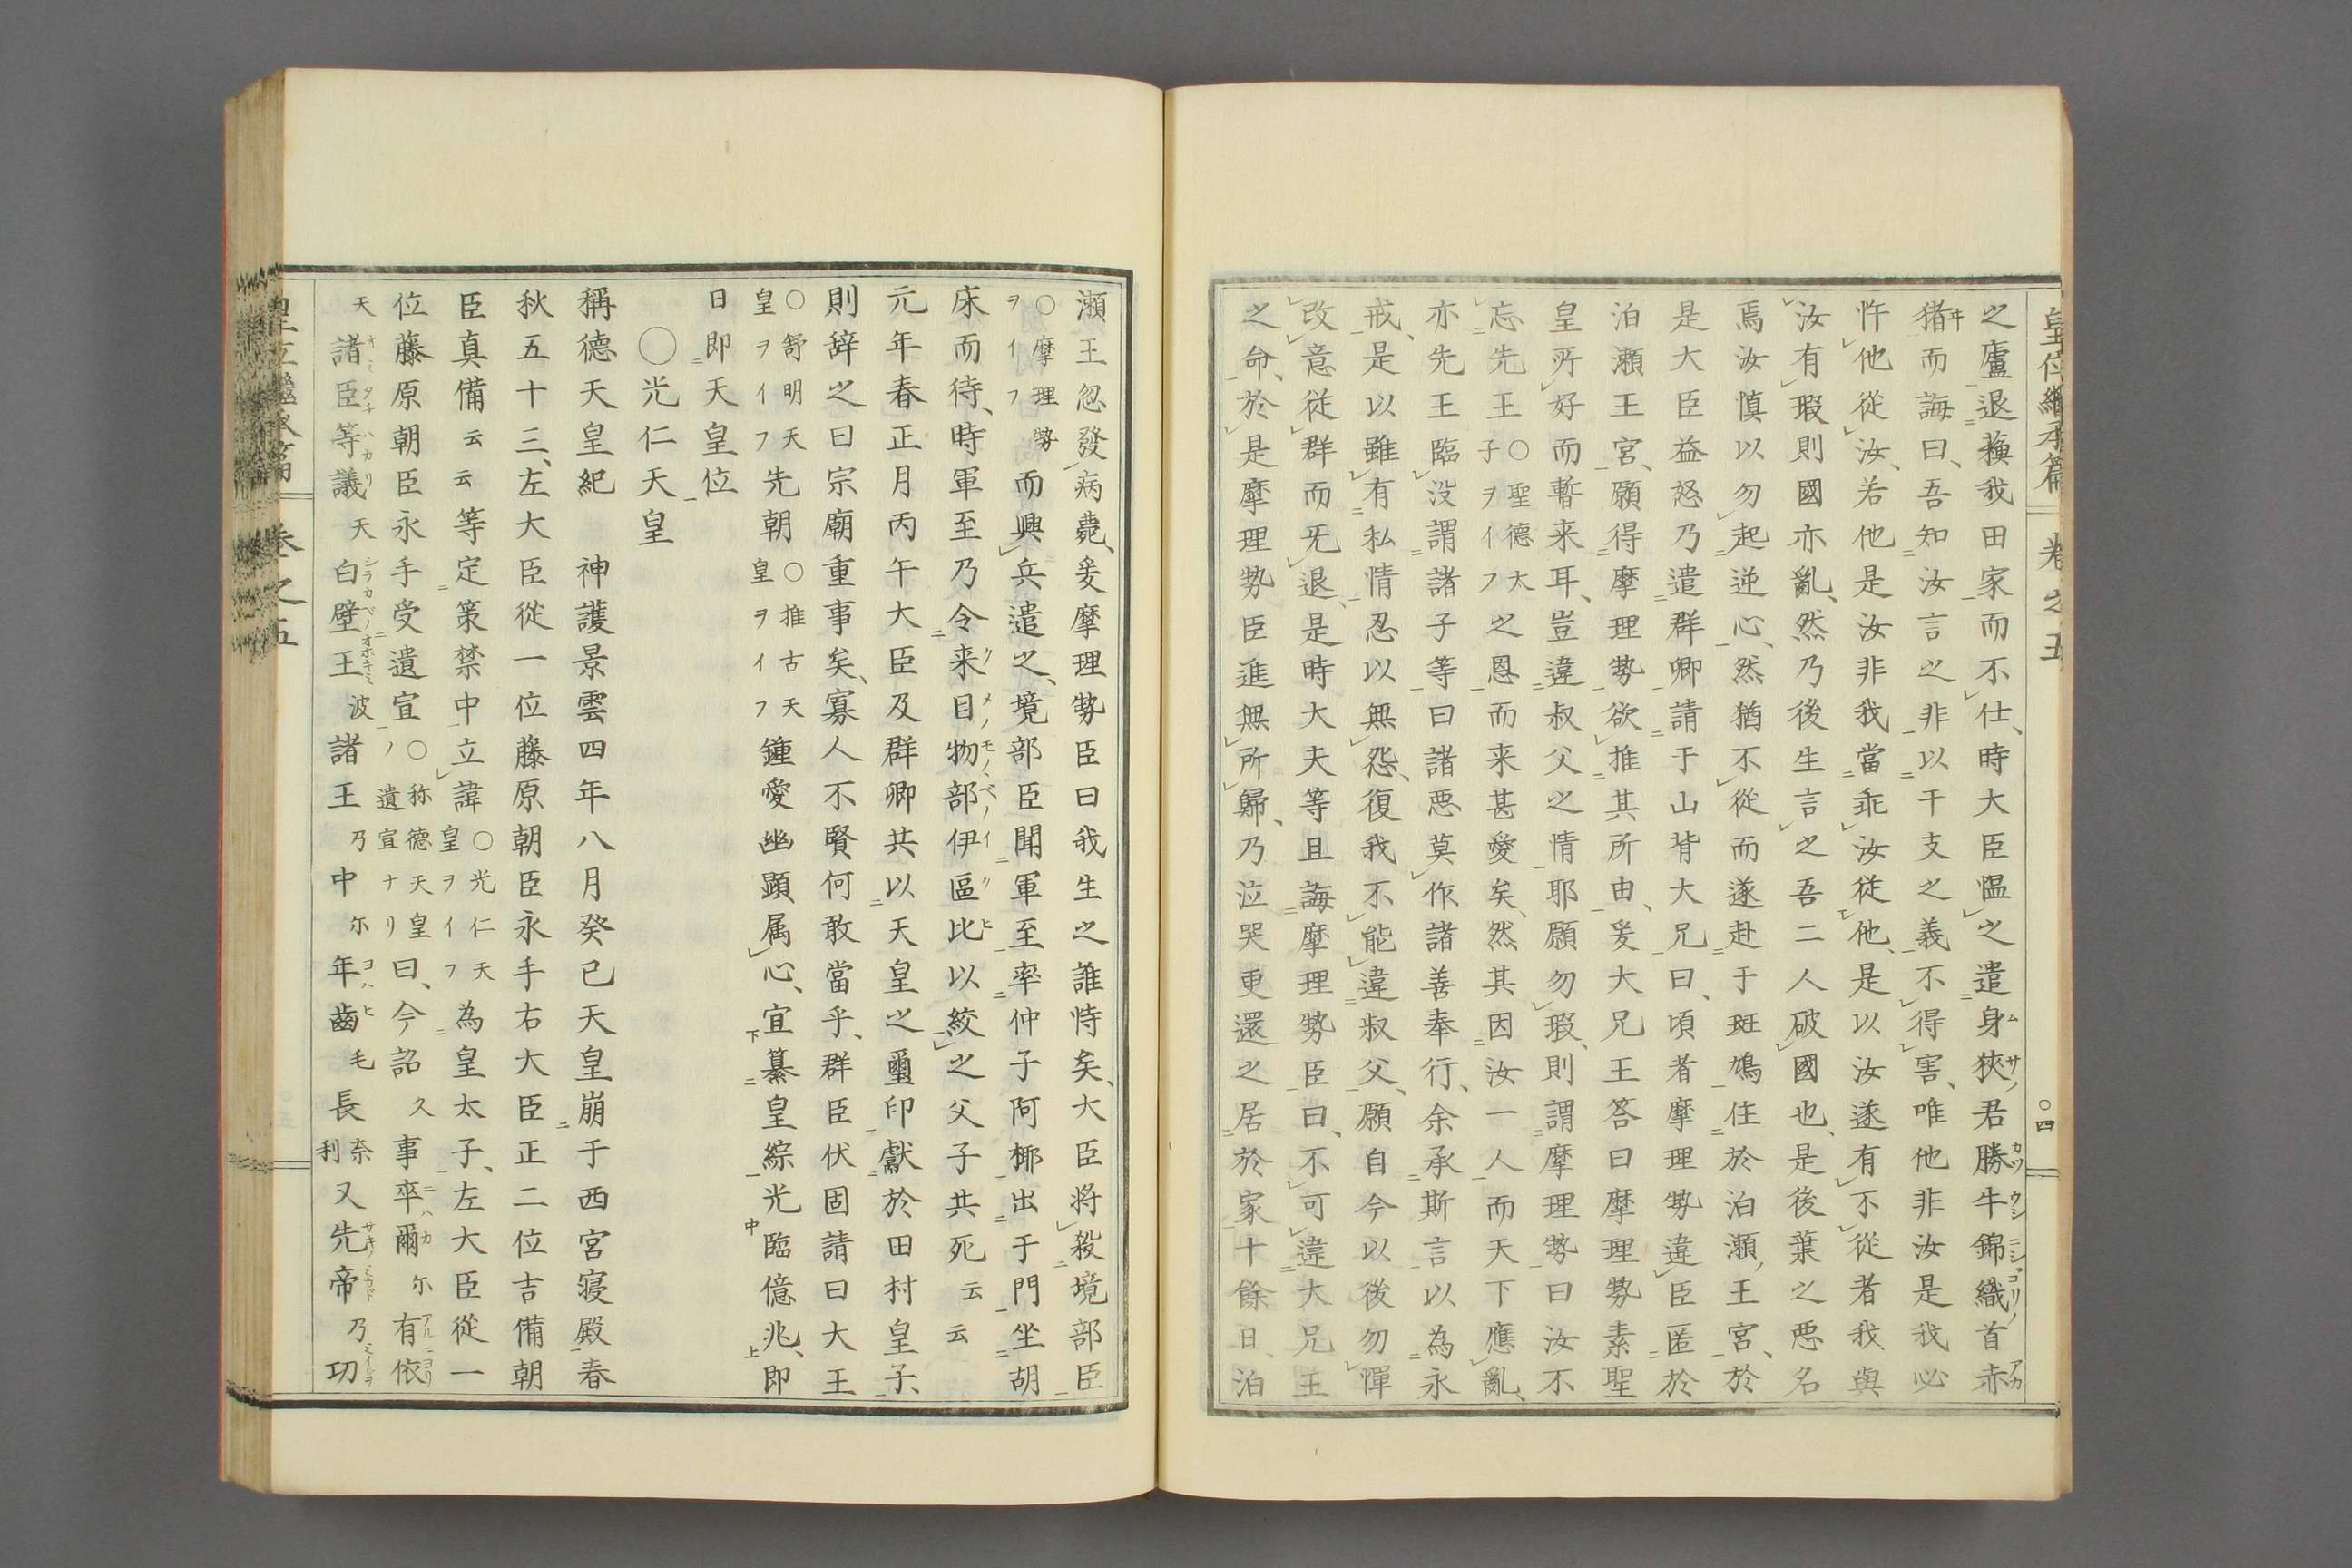 皇位繼承篇 卷之五 ○四
之廬退蘓我田家而不仕、時大臣愠之遣身狹君勝牛錦織首赤
猪而誨曰、吾知汝言之非以干支之義不得害、唯他非汝是我必
忤他從汝、若他是汝非我當乖汝從他、是以汝遂有不從者我與
汝有瑕則國亦亂、然乃後生言之吾二人破國也、是後葉之惡名
焉汝慎以勿起逆心、然猶不從而遂赴于斑鳩住於泊瀬王宮、於
是大臣益怒乃遣群卿請于山背大兄曰、頃者摩理勢違臣匿於
泊瀬王宮、願得摩理勢欲推其所由、爰大兄王答曰摩理勢素聖
皇所好而暫来耳、豈違叔父之情耶願勿瑕、則謂摩理勢曰汝不
忘先王○聖德太子ヲイフ之恩而来甚愛矣、然其因汝一人而天下應亂、
亦先王臨没謂諸子等曰諸惡莫作諸善奉行、余承斯言以為永
戒、是以雖有私情忍以無怨、復我不能違叔父、願自今以後勿憚
改意従群而旡退、是時大夫等且誨摩理勢臣曰、不可違大兄王
之命、於是摩理勢臣進無所歸、乃泣哭更還之居於家十餘日、泊
瀬王忽發病薨、爰摩理勢臣曰我生之誰恃矣、大臣将殺境部臣
○摩理勢ヲイフ而興兵遣之、境部臣聞軍至率仲子阿椰出于門坐胡
床而待、時軍至乃令来目物部伊區比以絞之父子共死云云
元年春正月丙午大臣及群卿共以天皇之璽印獻於田村皇子、
則辞之曰宗廟重事矣、寡人不賢何敢當乎、群臣伏固請曰大王
○舒明天皇ヲイフ先朝○推古天皇ヲイフ鍾愛幽顕属心、宜纂皇綜光臨億兆、即
日即天皇位
○光仁天皇
稱德天皇紀 神護景雲四年八月癸巳天皇崩于西宮寝殿春
秋五十三、左大臣從一位藤原朝臣永手右大臣正二位吉備朝
臣真備云云等定策禁中立諱○光仁天皇ヲイフ為皇太子、左大臣從一
位藤原朝臣永手受遺宣ノ○称德天皇遺宣ナリ曰、今詔久事卒爾尓有依
天諸臣等議天白壁王波諸王乃中尓年齒毛長奈利又先帝乃功
卷之五